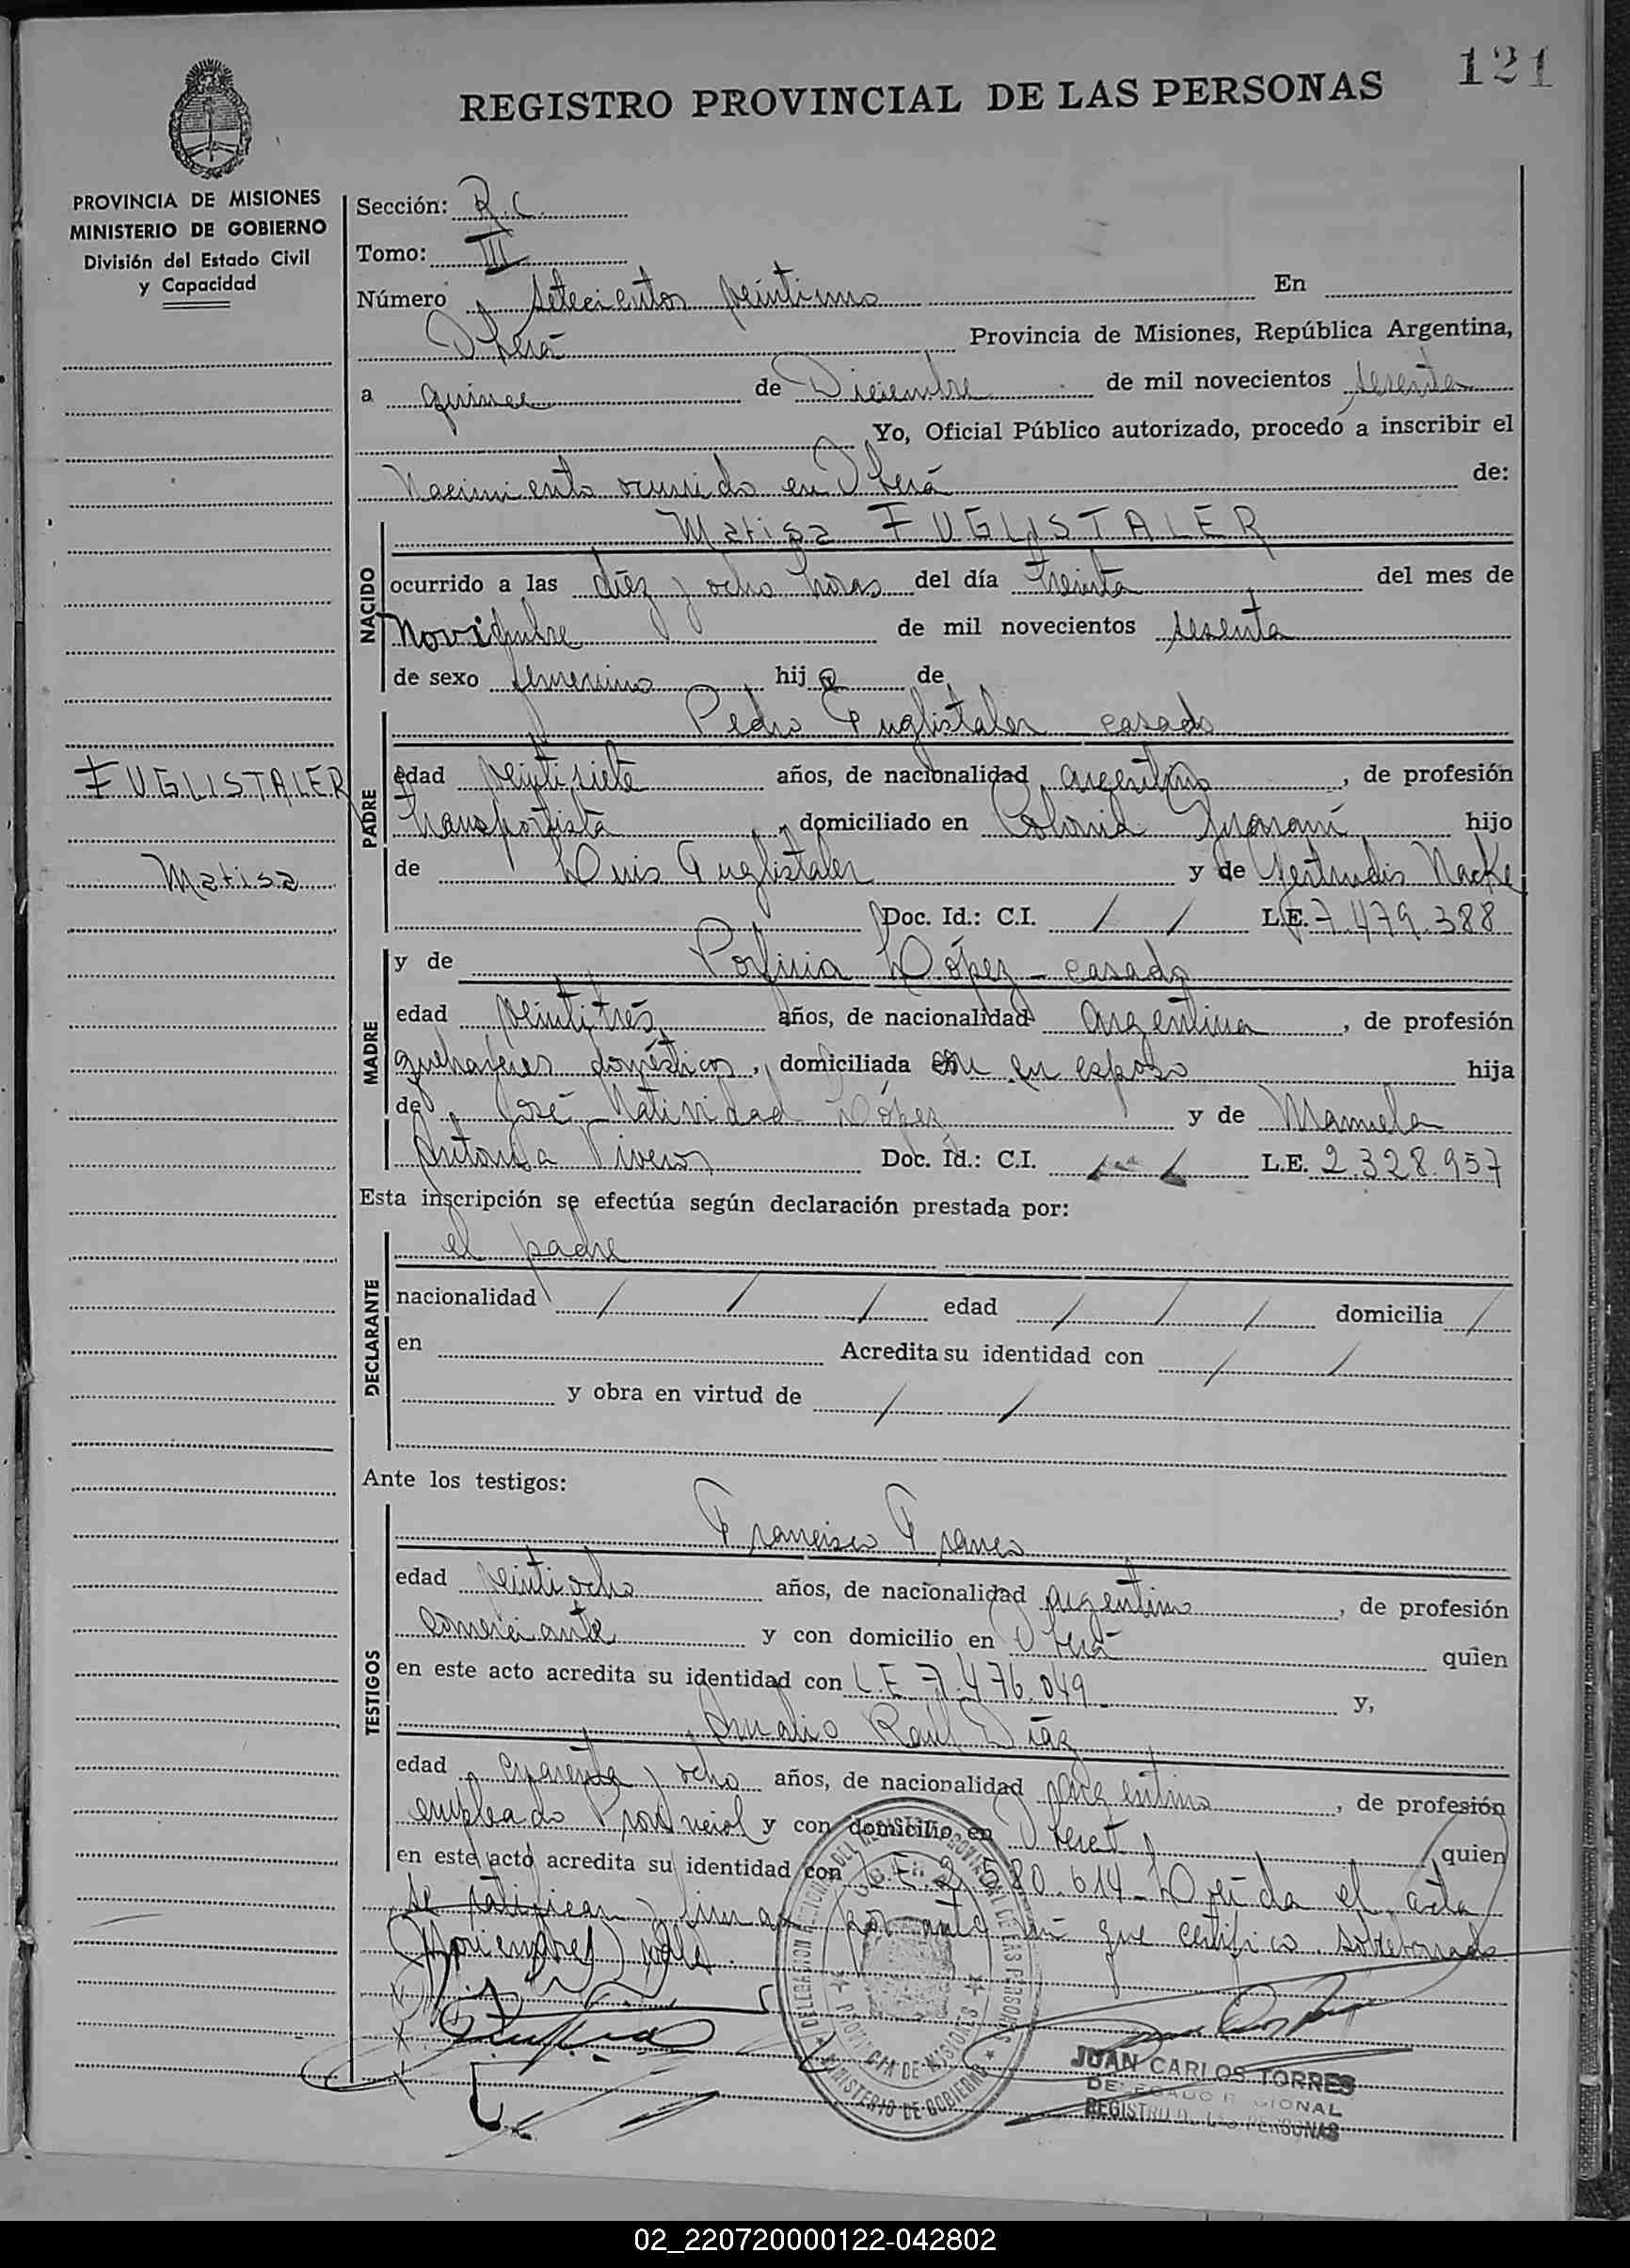 121
REGISTRO PROVINCIAL DE LAS PERSONAS
PROVINCIA DE MISIONES
MINISTERIO DE GOBIERNO
División del Estado Civil
y Capacidad
Sección: R.C.
Tomo: III
Número setecientos veintiuno En
Oberá Provincia de Misiones, República Argentina,
a quince de Diciembre de mil novecientos sesenta
Yo, Oficial Público autorizado, procedo a inscribir el
Nacimiento ocurrido en Oberá de:
NACIDO
Matisa FUGLISTALER
ocurrido a las diez y ocho horas del día treinta del mes de
Noviembre de mil novecientos sesenta
de sexo femenino hija de
PADRE
Pedro Fuglistaler - casado
FUGLISTALER
Matisa
edad veintisiete años, de nacionalidad argentino, de profesión
transportista, domiciliado en Colonia Guaraní hijo
de Luis Fuglistaler y de Gertrudis Nacke
Doc. Id.: C.I. / / L.E. 7.479.388
MADRE
y de Porfiria López - casada
edad veintitrés años, de nacionalidad argentina, de profesión
quehaceres domésticos, domiciliada con su esposo hija
de José Natividad López y de Manuela
Antonia Viveros Doc. Id.: C.I. / / L.E. 2.328.957
Esta inscripción se efectúa según declaración prestada por:
DECLARANTE
el padre
nacionalidad / / / edad / / / domicilia /
en Acredita su identidad con / /
y obra en virtud de / /
Ante los testigos:
TESTIGOS
Francisco Franco
edad veintiocho años, de nacionalidad argentino, de profesión
comerciante y con domicilio en Oberá quien
en este acto acredita su identidad con L.E 7.476.049 y,
Amalio Raúl Díaz
edad cuarenta y ocho años, de nacionalidad argentino, de profesión
empleado Provincial y con domicilio en Oberá quien
en este acto acredita su identidad con L.E. 2.580.614- Leída el acta
se ratifican y firman por ante mí que certifico. sobreborrado
(Noviembre) vale.
DELEGACION REGIONAL DEL REGISTRO PROVINCIAL DE LAS PERSONAS
OBERA
PROVINCIA DE MISIONES
MINISTERIO DE GOBIERNO
JUAN CARLOS TORRES
DELEGADO REGIONAL
REGISTRO DE LAS PERSONAS
02_220720000122-042802